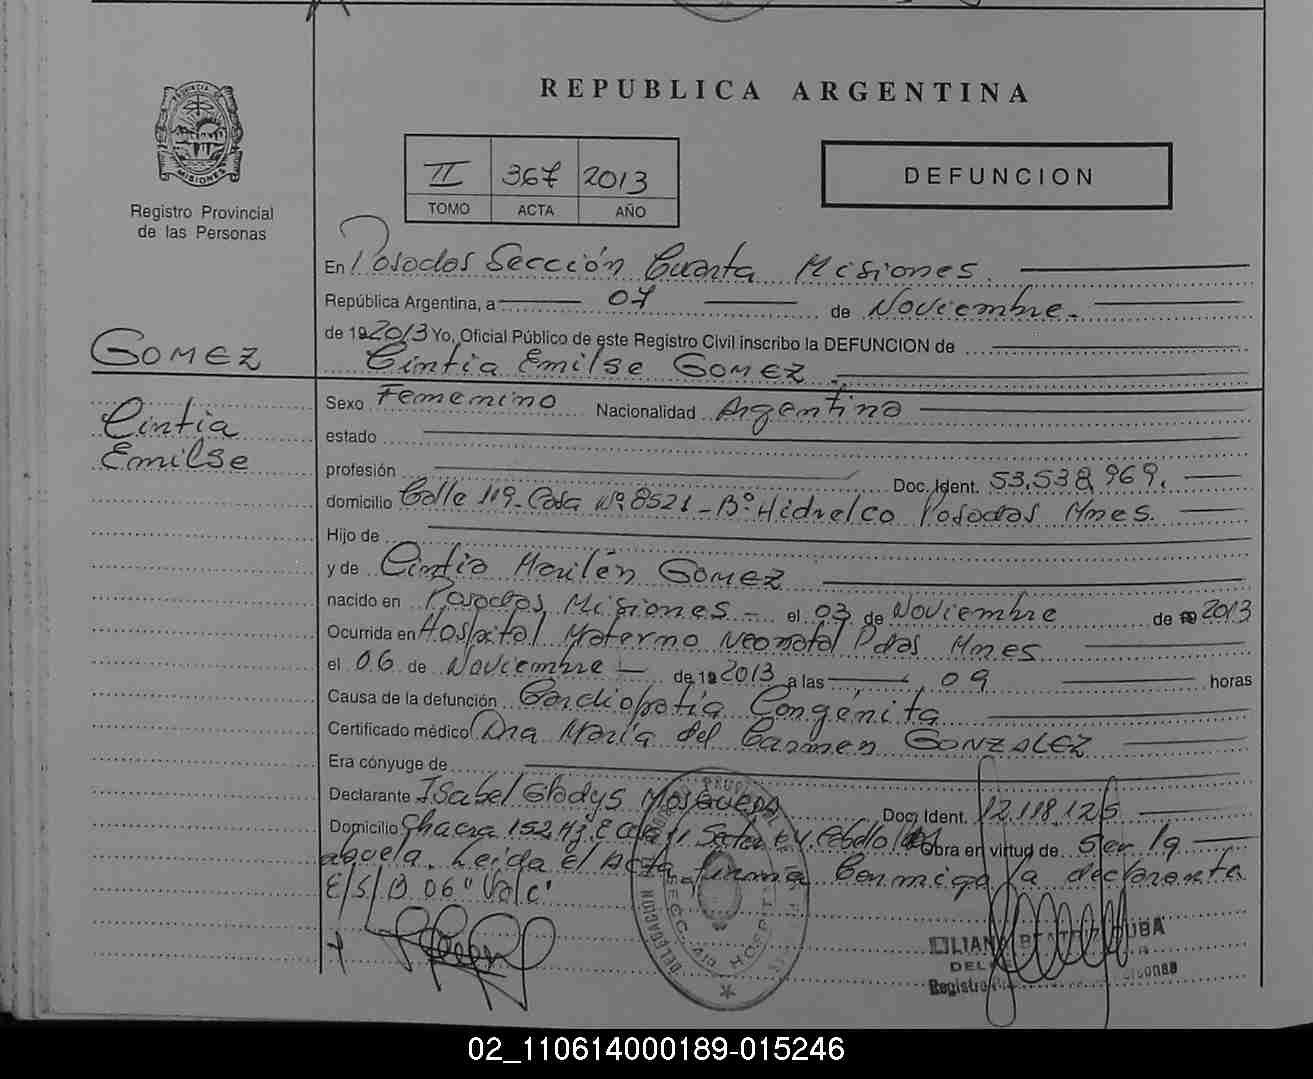 REPUBLICA ARGENTINA
PROVINCIA DE MISIONES
Registro Provincial
de las Personas
II 367 2013
TOMO ACTA AÑO
DEFUNCION
En Posadas Sección Cuarta Misiones.
República Argentina, a 07 de Noviembre.
de 19 2013 Yo, Oficial Público de este Registro Civil inscribo la DEFUNCION de
GOMEZ
Cintia Emilse GOMEZ
Cintia
Emilse
Sexo Femenino Nacionalidad Argentina
estado
profesión Doc. Ident. 53.538.969.
domicilio Calle 119-Casa Nº 8521-Bº Hidrelco Posadas Mnes.
Hijo de
y de Cintia Marilén GOMEZ
nacido en Posadas, Misiones - el 03 de Noviembre de 19 2013
Ocurrida en Hospital Materno Neonatal Pdas Mnes
el 06 de Noviembre - de 19 2013 a las 09 horas
Causa de la defunción Cardiopatía Congénita
Certificado médico Dra María del Carmen GONZALEZ
Era cónyuge de
Declarante Isabel Gladys Mosqueda Doc. Ident. 12.118.125
Domicilio Chacra 152, Mz. E Obra en virtud de ser la
abuela. Leída el Acta firma Conmigo la declarante
E/S/B 06 "Vale"
DELEGACION SECC. 4ta HOSPITAL
Registro
02_110614000189-015246